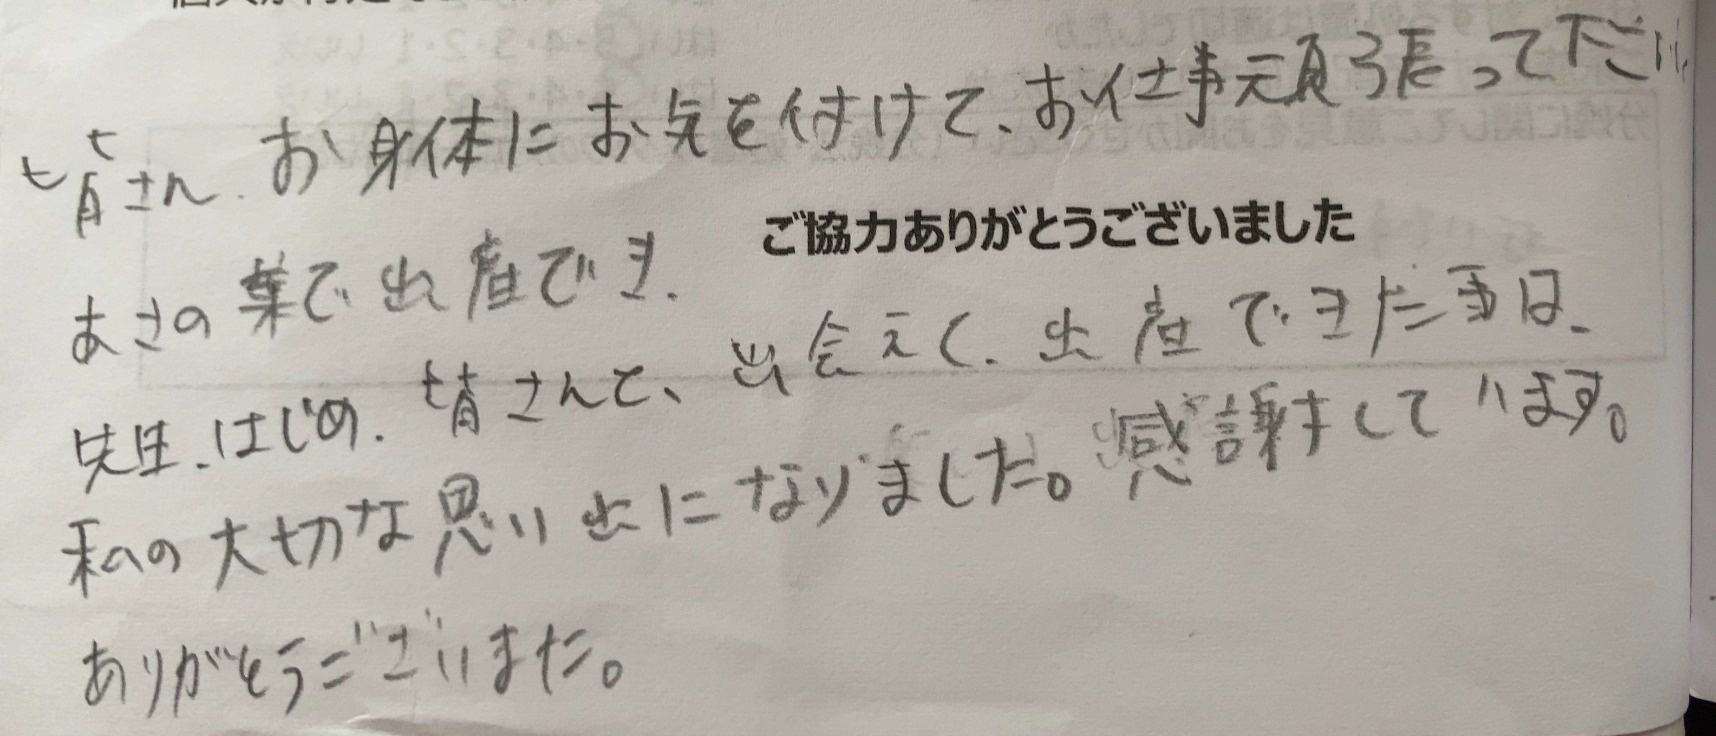 皆さん、お身体にお気を付けて、お仕事頑張って下さい。
ご協力ありがとうございました
あさの葉で出産でき、
先生、はじめ、皆さんと、出会えて、出産できた事は、
私の大切な思い出になりました。感謝しています。
ありがとうございました。